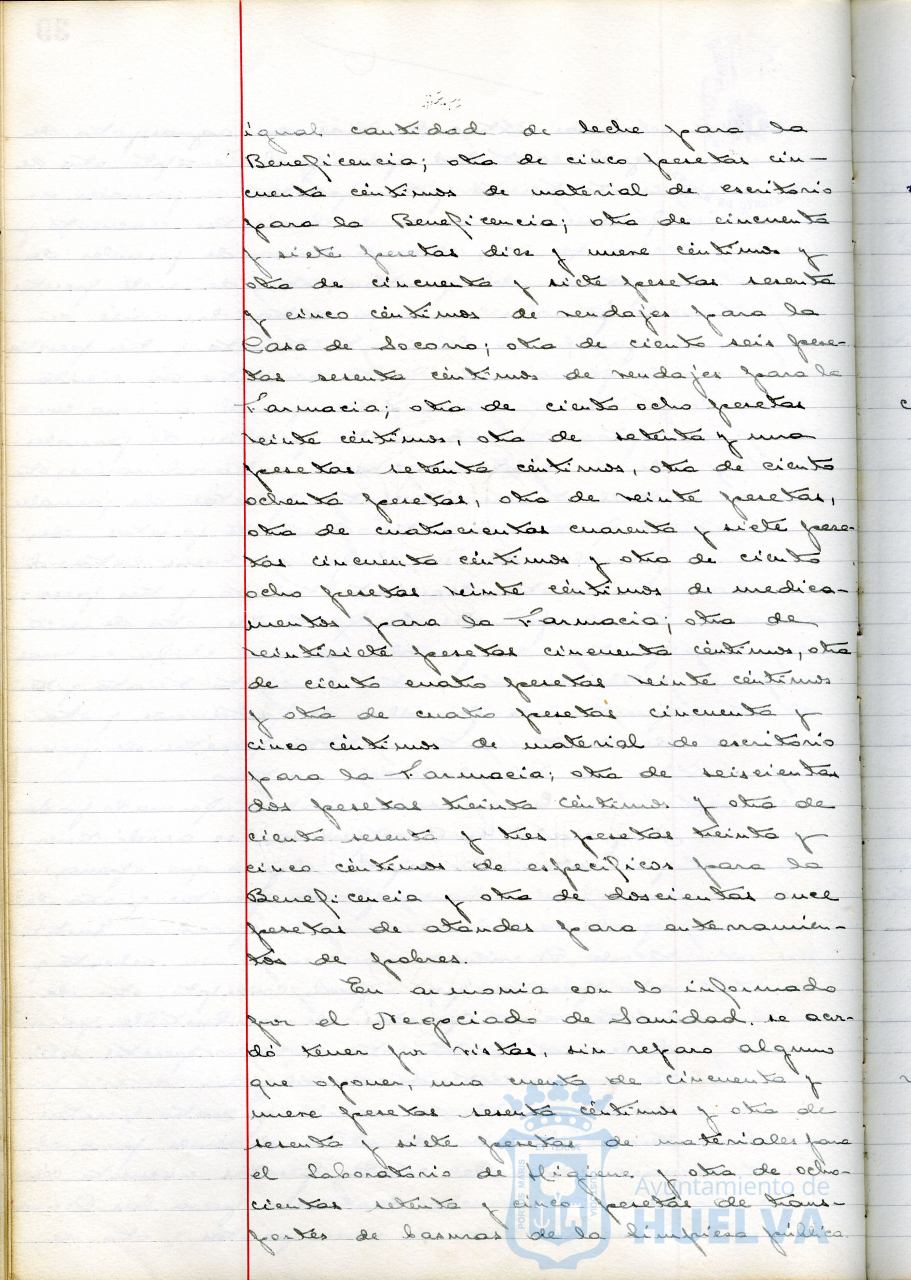 igual cantidad de leche para la
Beneficencia; otra de cinco pesetas cin-
cuenta céntimos de material de escritorio
para la Beneficencia; otra de cincuenta
y siete pesetas diez y nueve céntimos y
otra de cincuenta y siete pesetas sesenta
y cinco céntimos de vendajes para la
Casa de Socorro; otra de ciento seis pese-
tas sesenta céntimos de vendajes para la
Farmacia; otra de ciento ocho pesetas
veinte céntimos, otra de setenta y una
pesetas setenta céntimos, otra de ciento
ochenta pesetas, otra de veinte pesetas,
otra de cuatrocientas cuarenta y siete pese-
tas cincuenta céntimos y otra de ciento
ocho pesetas veinte céntimos de medica-
mentos para la Farmacia; otra de
veintisiete pesetas cincuenta céntimos, otra
de ciento cuatro pesetas veinte céntimos
y otra de cuatro pesetas cincuenta y
cinco céntimos de material de escritorio
para la Farmacia; otra de seiscientas
dos pesetas treinta céntimos y otra de
ciento sesenta y tres pesetas treinta y
cinco céntimos de específicos para la
Beneficencia y otra de doscientas once
pesetas de ataudes para enterramien-
tos de pobres.
En armonía con lo informado
por el Negociado de Sanidad, se acor-
dó tener por vistas, sin reparo alguno
que oponer, una cuenta de cincuenta y
nueve pesetas sesenta céntimos y otra de
sesenta y siete pesetas de materiales para
el laboratorio de Higiene y otra de ocho-
cientas setenta y cinco pesetas de trans-
portes de basuras de la limpieza pública.
Ayuntamiento de
HUELVA